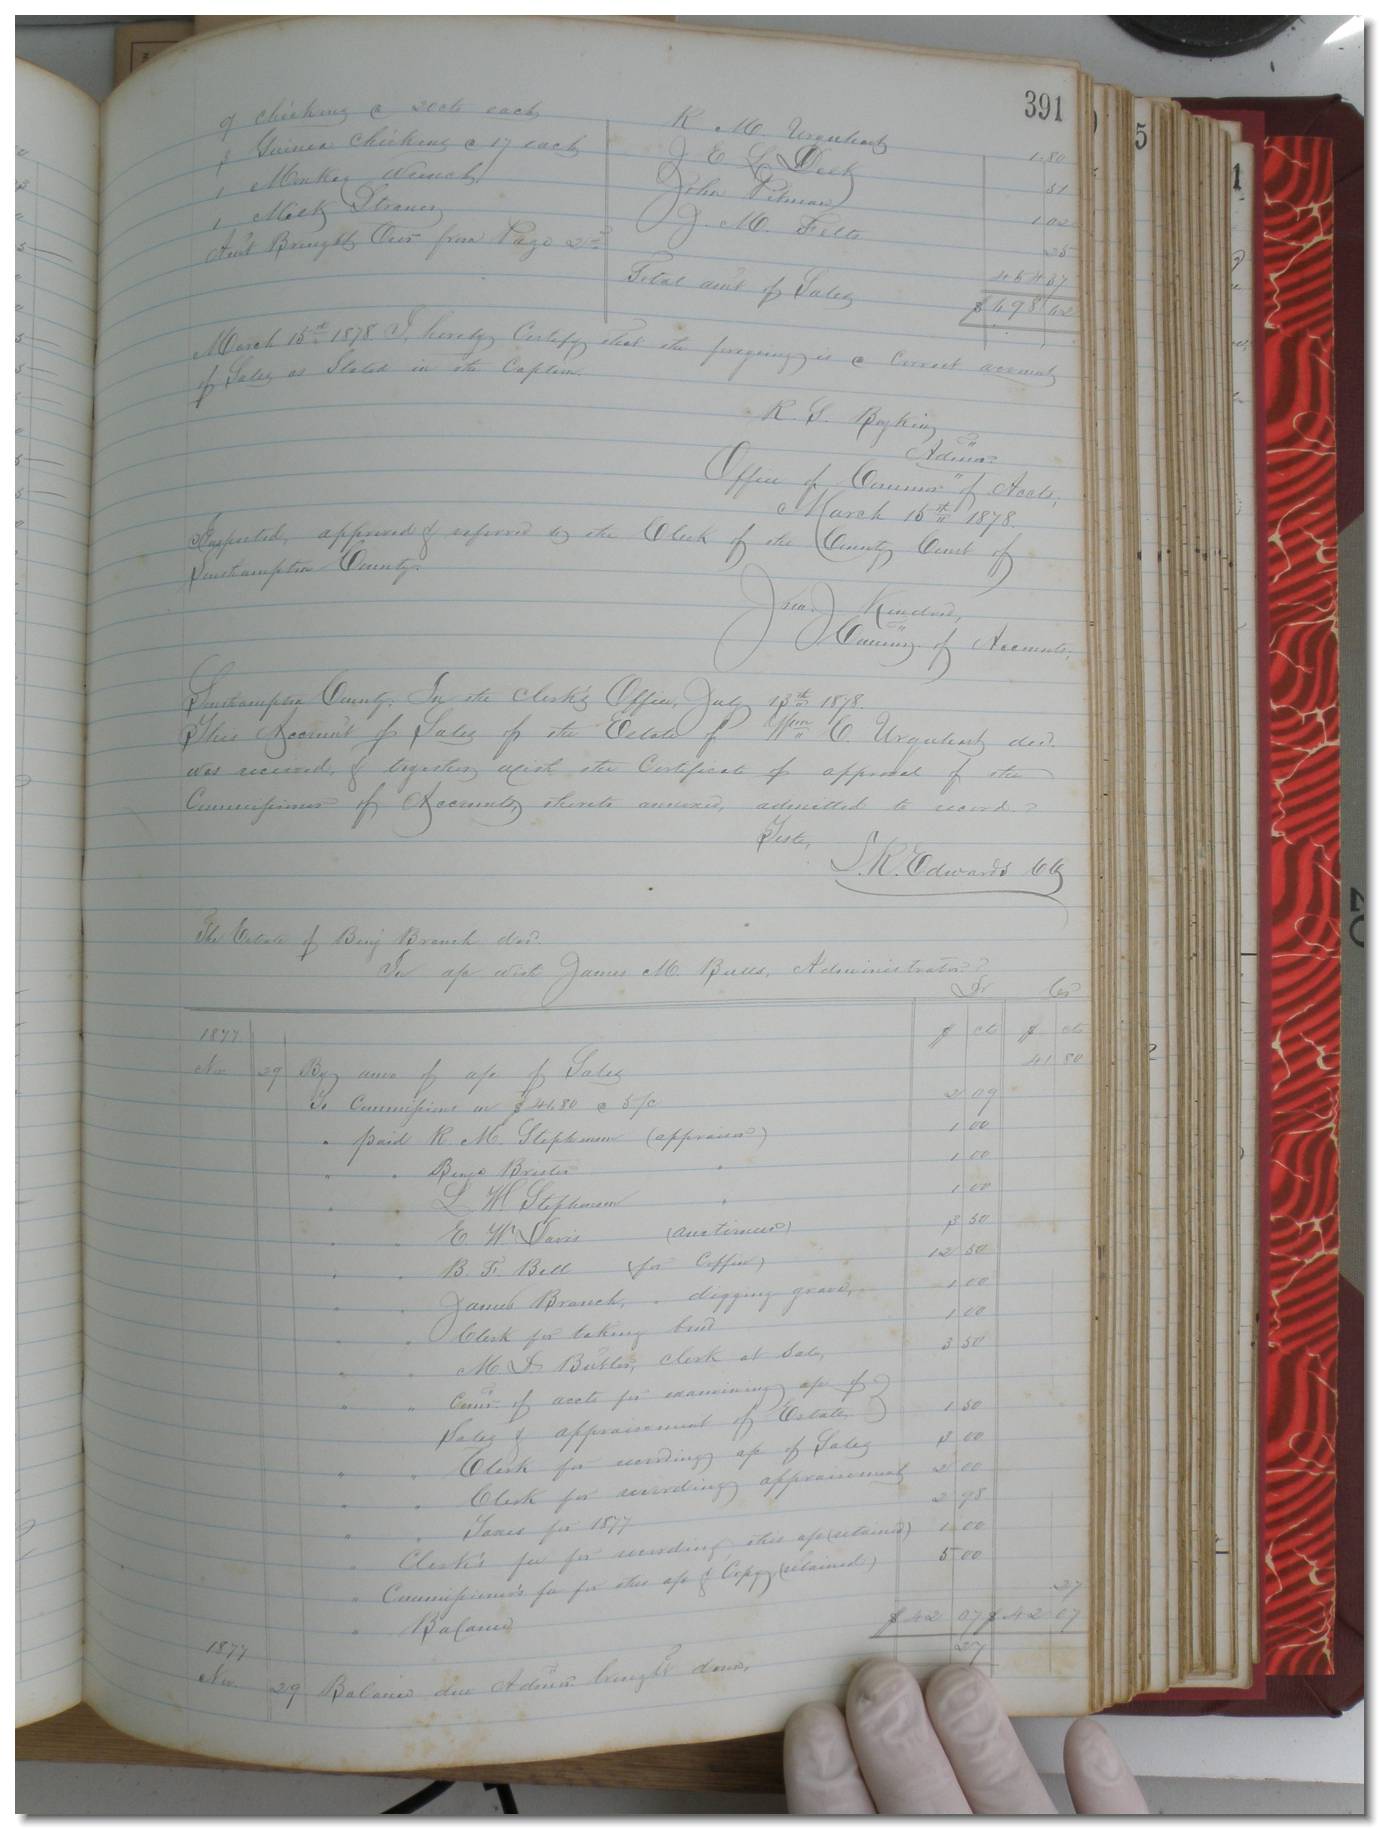 391
9 Chickens @ 20cts each K M. Urquhart 1.80
3 Guinea Chickens @ 17 each J E L Deck 51
1 Monkey Wrench John Pitman 1 02
1 Milk Strainer J. M. Felts 25
Am't Brought Over from Page 2nd 454 37
Total am't of Sales $ 498 62
March 15th 1878 I, hereby Certify that the foregoing is a Correct account
of Sales as Stated in the Caption.
R. S. Boykin
Admor
Office of Commr of Accts,
March 15th 1878.
Inspected, approved & referred to the Clerk of the County Court of
Southampton County.
Jno. J Kindred,
Commr. of Accounts.
Southampton County. In the Clerk's Office, July 13th 1878.
This Account of Sales of the Estate of Wm C. Urquhart decd.
was received, & together with the Certificate of approval of the
Commissioner of Accounts, thereto annexed, admitted to record.
Teste,
L. R. Edwards CC
The Estate of Benj Branch decd.
In a/c with James M. Butts, Administrator
Dr Cr
1877 $ cts $ cts
Nov 29 By amo of a/c of Sales 41 80
To Commissions on $41.80 @ 5 /c 2 09
" paid R. M. Stephenson (appraiser) 1 00
" " Benj Brister " 1 00
" " L W Stephenson " 1 00
" " E W Davis (auctioneer) 3 50
" " B. F. Bell (for Coffin) 12 50
" " James Branch, " digging grave, 1 00
" " Clerk for taking bond 1 00
" " M. D. Butler, clerk at sale, 3 50
" " Comr. of accts for examining a/c of
Sales & appraisement of Estate 1 50
" " Clerk for recording a/c of Sales 3 00
" " Clerk for recording appraisement 2 00
" " Taxes for 1877 2 98
" Clerk's fee for recording this a/c (retained) 1 00
" Commissioner's fee for this a/c & Copy, (retained) 5 00
" Balance 27
$ 42 07 $ 42 07
1877 27
Nov. 29 Balance due Admor brought down,